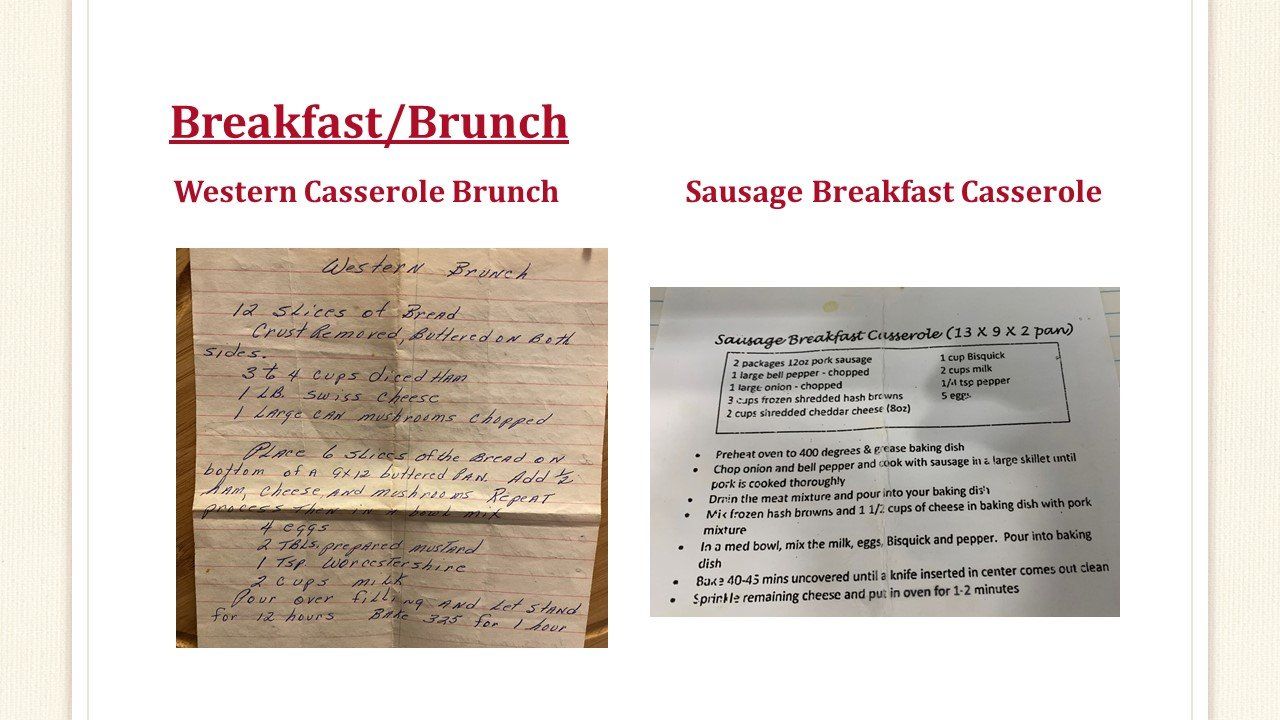 Breakfast/Brunch
Western Casserole Brunch
Western Brunch
12 slices of Bread
Crust Removed, Buttered on Both
sides.
3 to 4 cups diced Ham
1 LB. Swiss Cheese
1 Large can mushrooms chopped
Place 6 slices of the Bread on
bottom of a 9x12 buttered Pan. Add 1/2
Ham, cheese, and meshrooms Repeat
process then in a bowl mix
4 eggs
2 TBLS. prepared mustard
1 Tsp Worcestershire
2 cups milk
Pour over filling and Let stand
for 12 hours Bake 325 for 1 hour
Sausage Breakfast Casserole
Sausage Breakfast Casserole (13 X 9 X 2 pan)
2 packages 12oz pork sausage
1 large bell pepper - chopped
1 large onion - chopped
3 cups frozen shredded hash browns
2 cups shredded cheddar cheese (8oz)
1 cup Bisquick
2 cups milk
1/4 tsp pepper
5 eggs
• Preheat oven to 400 degrees & grease baking dish
• Chop onion and bell pepper and cook with sausage in a large skillet until
pork is cooked thoroughly
• Drain the meat mixture and pour into your baking dish
• Mix frozen hash browns and 1 1/2 cups of cheese in baking dish with pork
mixture
• In a med bowl, mix the milk, eggs, Bisquick and pepper. Pour into baking
dish
• Bake 40-45 mins uncovered until a knife inserted in center comes out clean
• Sprinkle remaining cheese and put in oven for 1-2 minutes